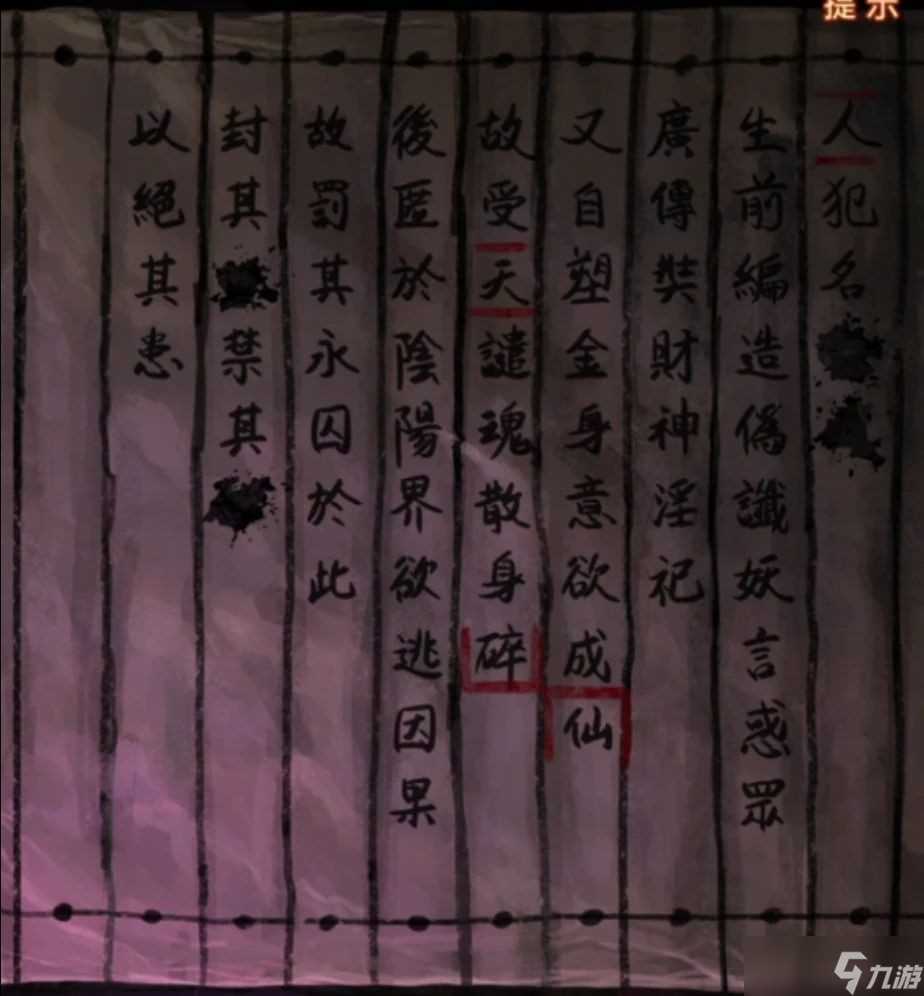 提示
人犯名
生前編造偽讖妖言惑眾
廣傳奘財神淫祀
又自塑金身意欲成仙
故受天譴魂散身碎
後匿於陰陽界欲逃因果
故罰其永囚於此
封其禁其
以絕其患
九游